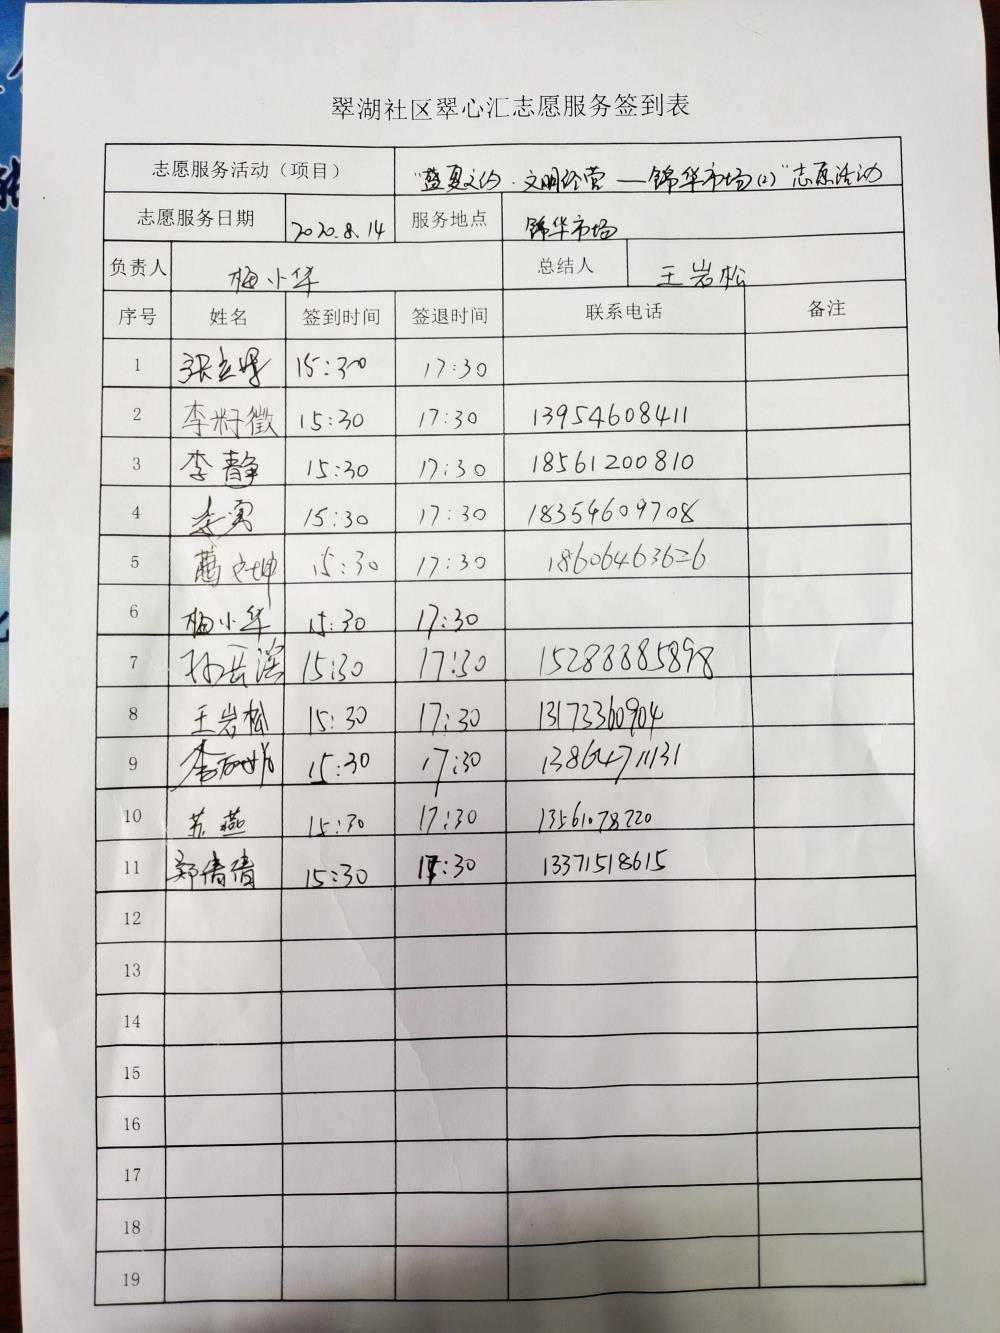 翠湖社区翠心汇志愿服务签到表
志愿服务活动（项目） “盛夏之约·文明经营——锦华市场(2)”志愿活动
志愿服务日期 2020.8.14 服务地点 锦华市场
负责人 梅小华 总结人 王岩松
序号 姓名 签到时间 签退时间 联系电话 备注
1 15:30 17:30
2 李籽徵 15:30 17:30 13954608411
3 李静 15:30 17:30 18561200810
4 李勇 15:30 17:30 18354609708
5 15:30 17:30 18606463626
6 梅小华 15:30 17:30
7 孙岳滨 15:30 17:30 15288885898
8 王岩松 15:30 17:30 13173360904
9 15:30 17:30 13864711131
10 苏燕 15:30 17:30 13561078220
11 郑倩倩 15:30 17:30 13371518615
12
13
14
15
16
17
18
19